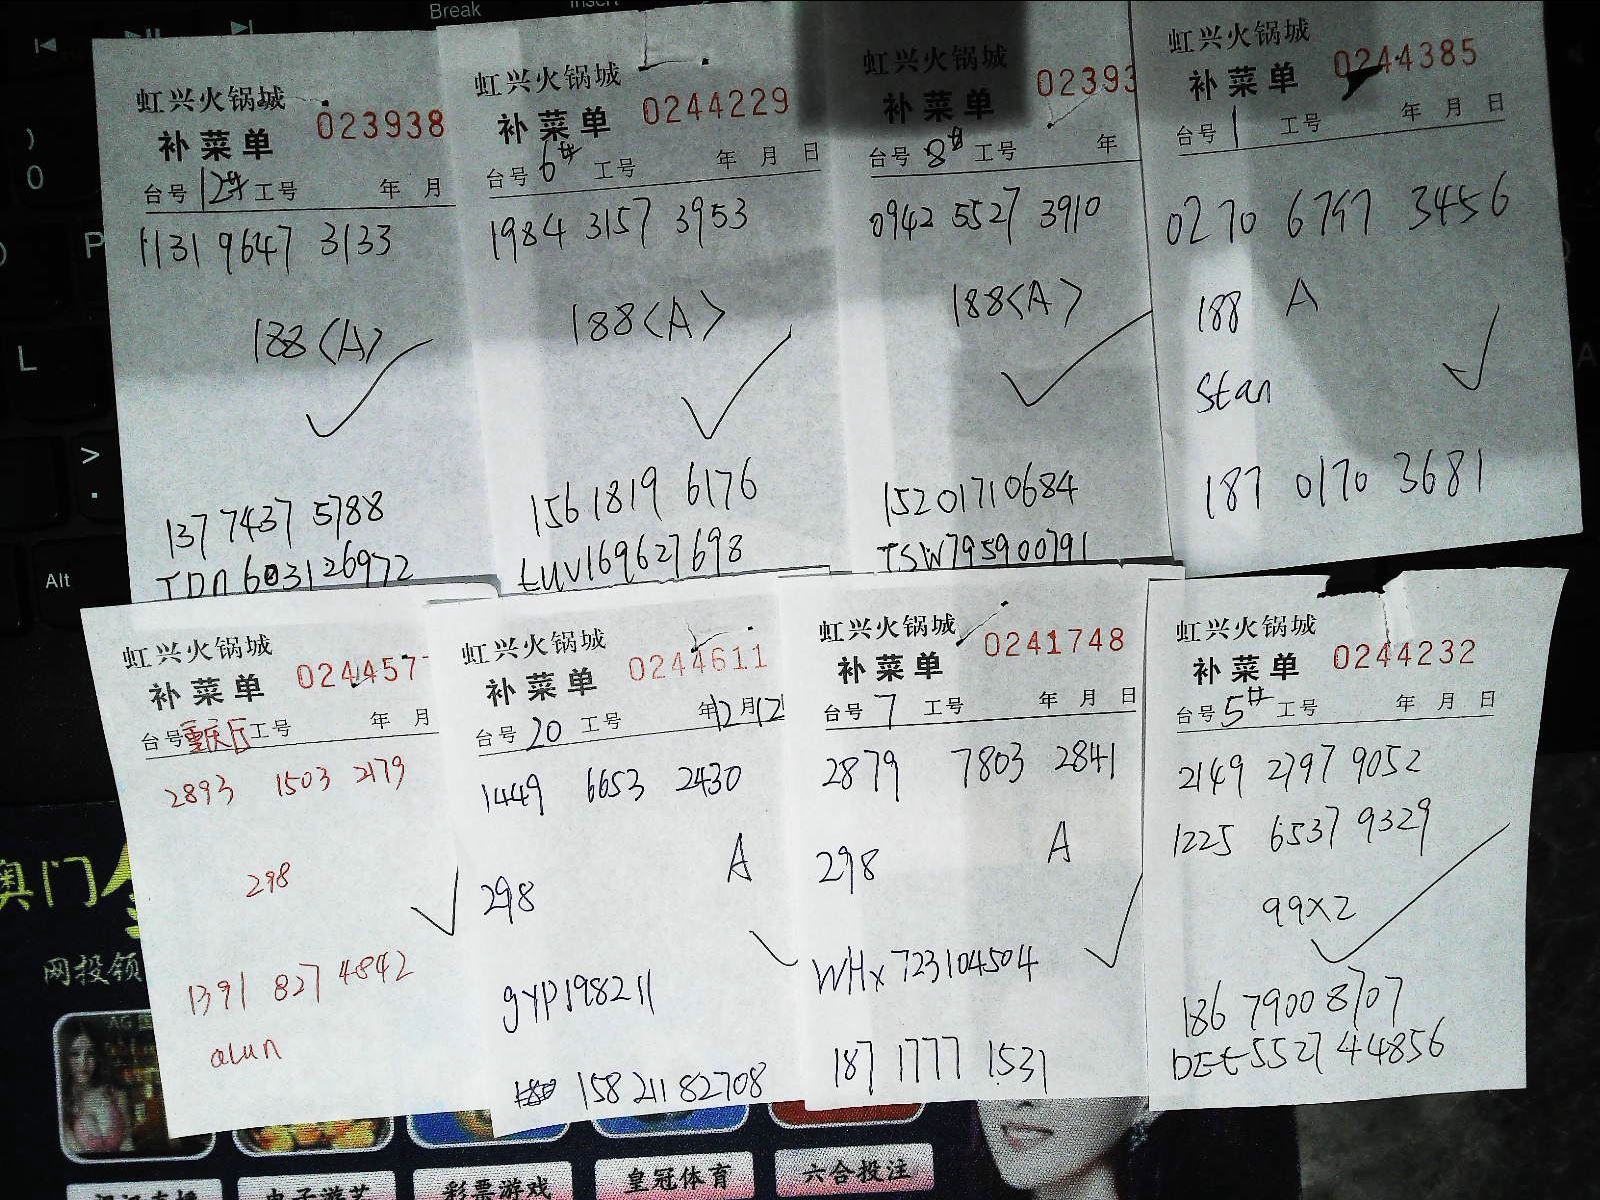 Break
Insert
)
0
P
L
>
.
Alt
虹兴火锅城
补菜单 023938
台号 12# 工号 年 月
1131 9647 3133
188〈A〉
137 7437 5788
TDN603126972
虹兴火锅城
补菜单 0244229
台号 6# 工号 年 月 日
1984 3157 3953
188〈A〉
156 1819 6176
tuv169627698
虹兴火锅城
补菜单 02393
台号 8# 工号 年
0942 5527 3910
188〈A〉
15201710684
TSW795900791
虹兴火锅城
补菜单 0244385
台号 1 工号 年 月 日
0270 6797 3456
188 A
Stan
187 0170 3681
虹兴火锅城
补菜单 024457
台号 重庆厅 工号 年 月
2893 1503 2179
298
1391 827 4842
alun
虹兴火锅城
补菜单 0244611
台号 20 工号 年 12 月 12
1449 6653 2430
A
298
gyp198211
158 211 82708
虹兴火锅城
补菜单 0241748
台号 7 工号 年 月 日
2879 7803 2841
298 A
WHx723104504
187 1777 1531
虹兴火锅城
补菜单 0244232
台号 5# 工号 年 月 日
2149 2797 9052
1225 6537 9329
99×2
186 7900 8707
DEt552744856
澳门
网投领
彩票游戏
皇冠体育
六合投注